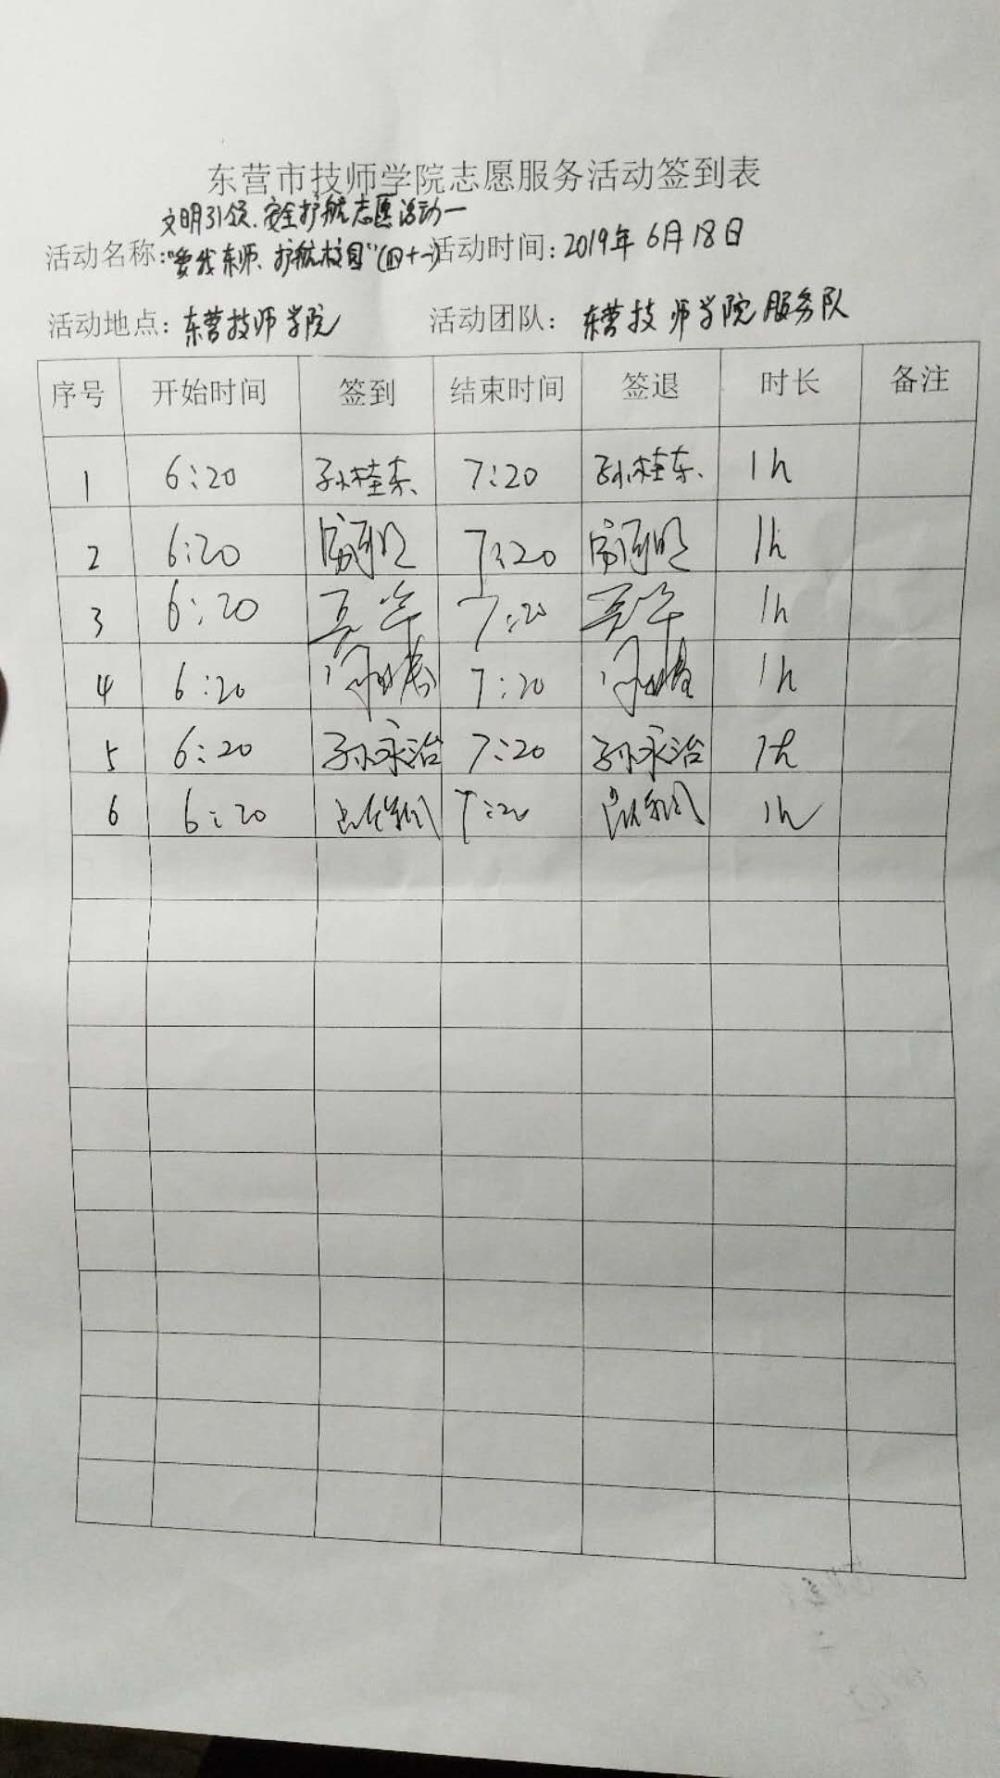 东营市技师学院志愿服务活动签到表
文明引领、安全护航志愿活动一
活动名称:"爱我东师、护航校园"(四十一) 活动时间: 2019年6月18日
活动地点: 东营技师学院 活动团队: 东营技师学院服务队
序号 开始时间 签到 结束时间 签退 时长 备注
1 6:20 孙桂东 7:20 孙桂东 1h
2 6:20 7:20 1h
3 6:20 7:20 1h
4 6:20 7:20 1h
5 6:20 孙永治 7:20 孙永治 1h
6 6:20 7:20 1h